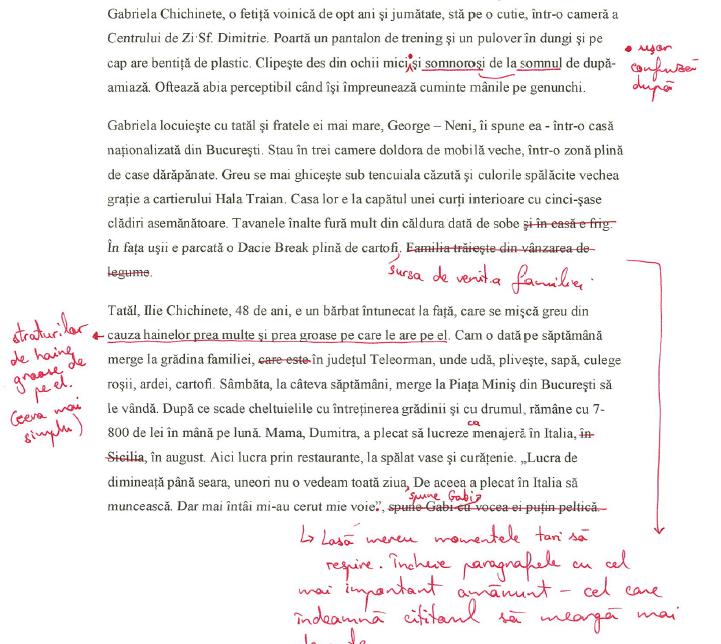 Gabriela Chichinete, o fetiță voinică de opt ani și jumătate, stă pe o cutie, într-o cameră a
Centrului de Zi Sf. Dimitrie. Poartă un pantalon de trening și un pulover în dungi și pe
cap are bentiță de plastic. Clipește des din ochii mici și somnoroși de la somnul de după-
amiază. Oftează abia perceptibil când își împreunează cuminte mânile pe genunchi.
ușor
confuză
după
Gabriela locuiește cu tatăl și fratele ei mai mare, George – Neni, îi spune ea - într-o casă
naționalizată din București. Stau în trei camere doldora de mobilă veche, într-o zonă plină
de case dărăpănate. Greu se mai ghicește sub tencuiala căzută și culorile spălăcite vechea
grație a cartierului Hala Traian. Casa lor e la capătul unei curți interioare cu cinci-șase
clădiri asemănătoare. Tavanele înalte fură mult din căldura dată de sobe și în casă e frig.
În fața ușii e parcată o Dacie Break plină de cartofi. Familia trăiește din vânzarea de
legume.
, sursa de venit a familiei.
Tatăl, Ilie Chichinete, 48 de ani, e un bărbat întunecat la față, care se mișcă greu din
cauza hainelor prea multe și prea groase pe care le are pe el. Cam o dată pe săptămână
merge la grădina familiei, care este în județul Teleorman, unde udă, plivește, sapă, culege
roșii, ardei, cartofi. Sâmbăta, la câteva săptămâni, merge la Piața Miniș din București să
le vândă. După ce scade cheltuielile cu întreținerea grădinii și cu drumul, rămâne cu 7-
800 de lei în mână pe lună. Mama, Dumitra, a plecat să lucreze ca menajeră în Italia, în
Sicilia, în august. Aici lucra prin restaurante, la spălat vase și curățenie. „Lucra de
dimineață până seara, uneori nu o vedeam toată ziua, De aceea a plecat în Italia să
muncească. Dar mai întâi mi-au cerut mie voie.”, spune Gabi cu vocea ei puțin peltică.
spune Gabi
straturilor
de haine
groase de
pe el.
(ceva mai
simplu)
Lasă mereu momentele tari să
respire. Încheie paragrafele cu cel
mai important amănunt – cel care
îndeamnă cititorul să meargă mai